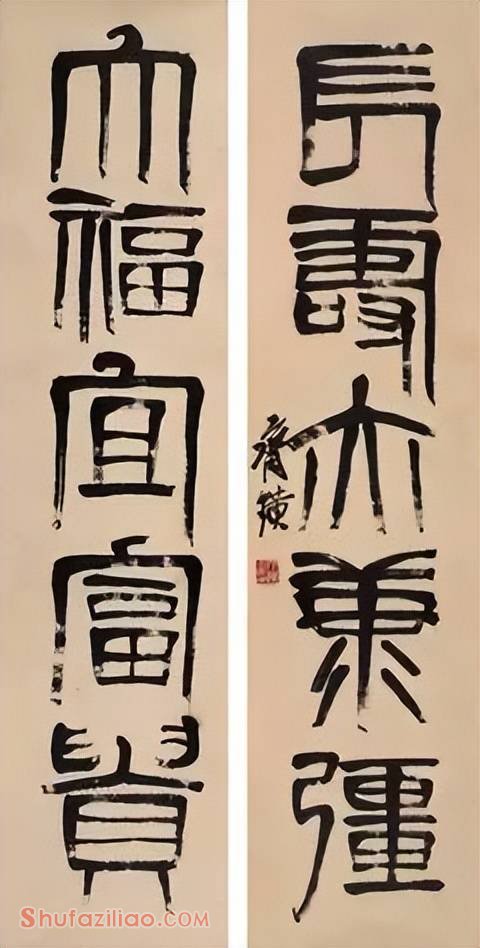 長壽亦康彊
齊璜
大福宜富貴
Shufaziliao.com